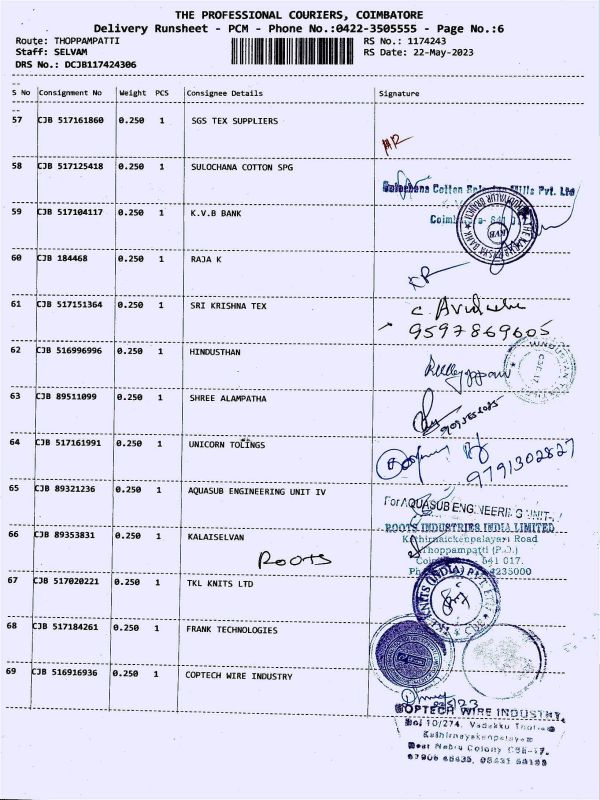 THE PROFESSIONAL COURIERS, COIMBATORE
Delivery Runsheet - PCM - Phone No.:0422-3505555 - Page No.:6
Route: THOPPAMPATTI RS No.: 1174243
Staff: SELVAM RS Date: 22-May-2023
DRS No.: DCJB117424306
S No Consignment No Weight PCS Consignee Details Signature
57 CJB 517161860 0.250 1 SGS TEX SUPPLIERS
58 CJB 517125418 0.250 1 SULOCHANA COTTON SPG
Sulochana Cotton Mills Pvt. Ltd
59 CJB 517104117 0.250 1 K.V.B BANK
KVB
60 CJB 184468 0.250 1 RAJA K
61 CJB 517151364 0.250 1 SRI KRISHNA TEX
9597869605
62 CJB 516996996 0.250 1 HINDUSTHAN
63 CJB 89511099 0.250 1 SHREE ALAMPATHA
64 CJB 517161991 0.250 1 UNICORN TOLINGS
9791302827
65 CJB 89321236 0.250 1 AQUASUB ENGINEERING UNIT IV
For AQUASUB ENGINEERING UNIT-
66 CJB 89353831 0.250 1 KALAISELVAN
ROOTS INDUSTRIES INDIA LIMITED
Kathirnaickenpalayam Road
Thoppampatti (P.O.)
641 017.
235000
ROOTS
67 CJB 517020221 0.250 1 TKL KNITS LTD
TKL KNITS (INDIA) PVT. LTD
68 CJB 517184261 0.250 1 FRANK TECHNOLOGIES
69 CJB 516916936 0.250 1 COPTECH WIRE INDUSTRY
COPTECH WIRE INDUSTRY
10/274, Vadakku
Kathirnayakenpalayam
Colony CBE-17.